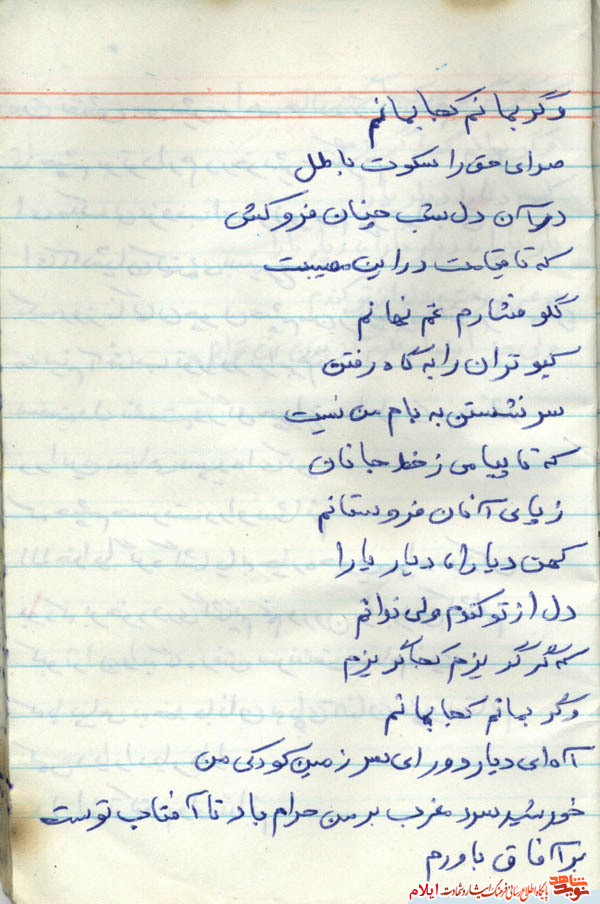 وگر بمانم کجا بمانم
صدای حق را سکوت باطل
در آن دل شب چنان فرو کش
که تا قیامت در این مصیبت
گلو فشارم غم نهانم
کبوتران را به گاه رفتن
سر نشستن به بام من نیست
که تا پیامی ز خط جانان
ز پای آنان فرو ستانم
کهن دیارا، دیار یارا
دل از تو کندم ولی ندانم
که گر گریزم کجا گریزم
وگر بمانم کجا بمانم
آه ای دیار دور ای سرزمین کودکی من
خورشید سرد مغرب بر من حرام باد تا آفتاب توست
بر آفاق باورم
نوید شاهد
پایگاه اطلاع رسانی فرهنگ ایثار و شهادت ایلام